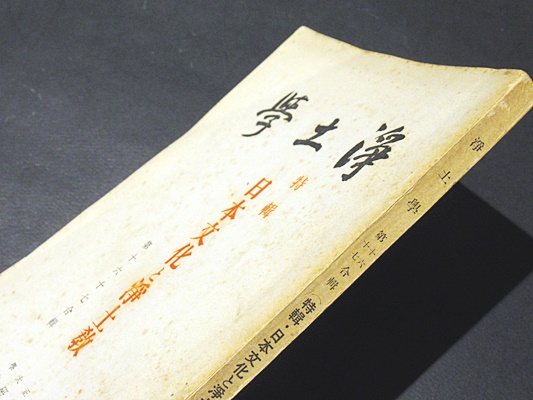 淨土學
特輯
日本文化と淨土敎
第十六十七合輯
淨土學 第十六十七合輯 特輯・日本文化と淨